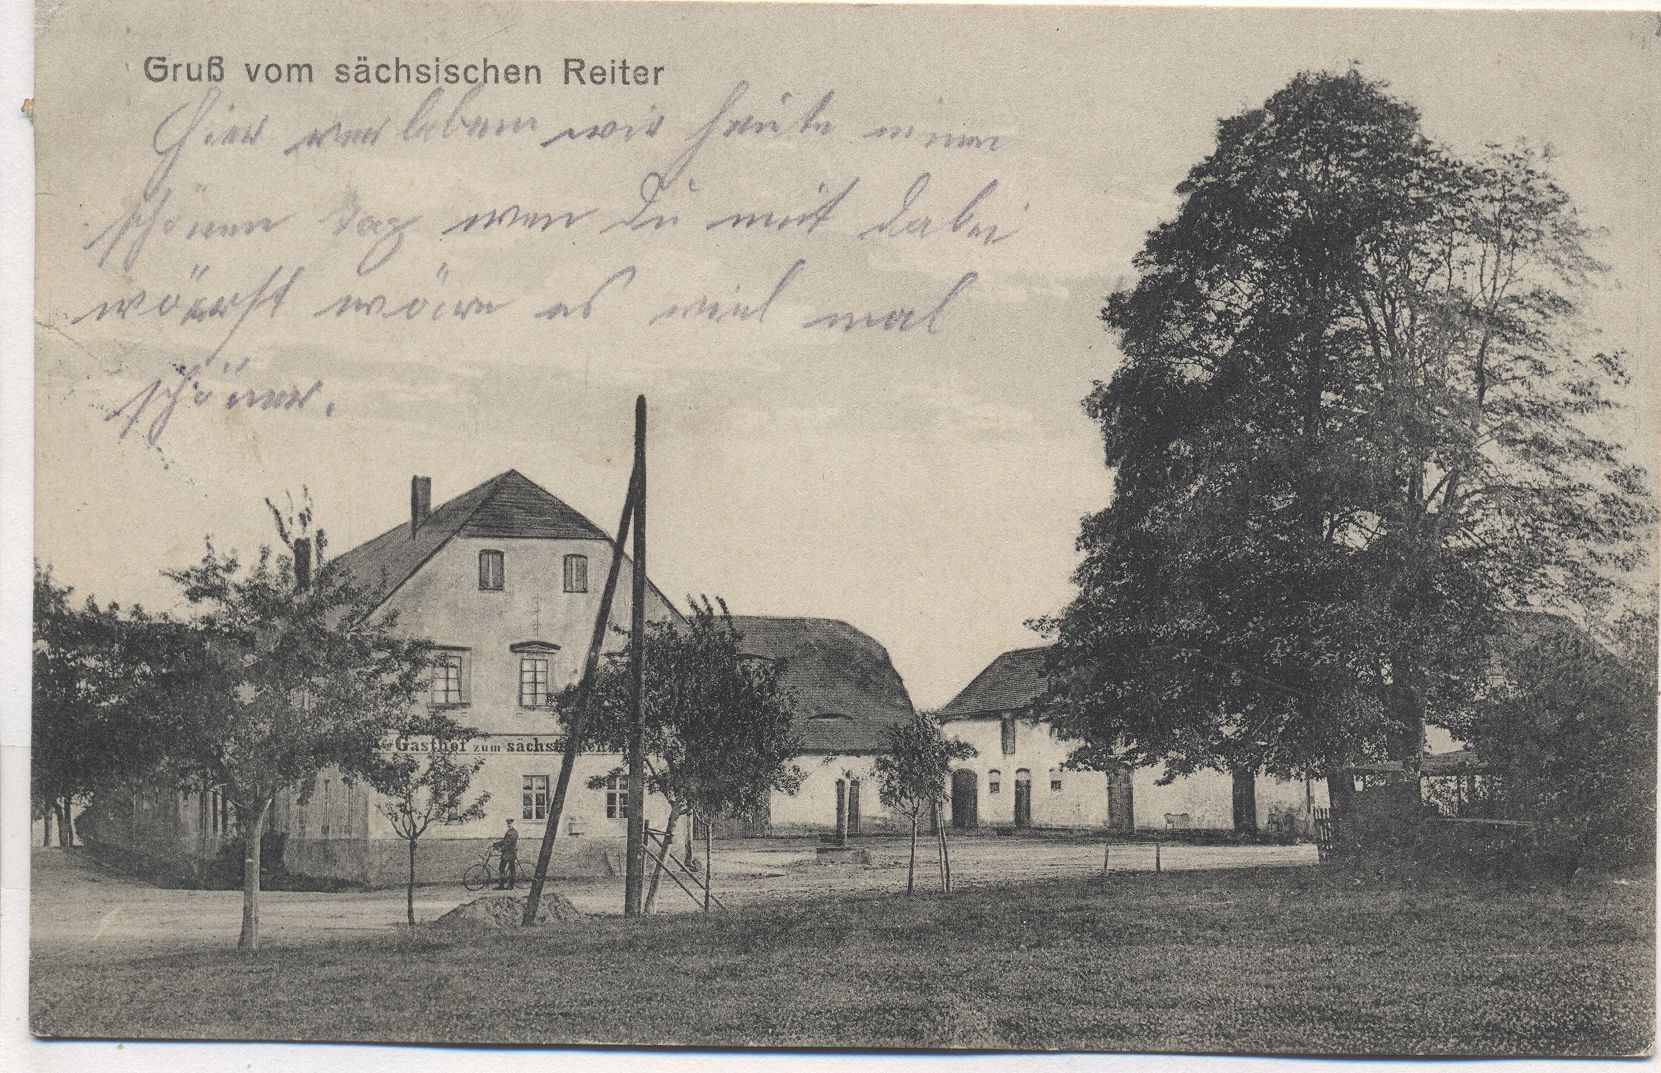 Gruß vom sächsischen Reiter
Hier verleben wir heute einen
schönen Tag wen Du mit dabei
wärst wäre es viel mal
schöner.
Gasthof zum sächsischen